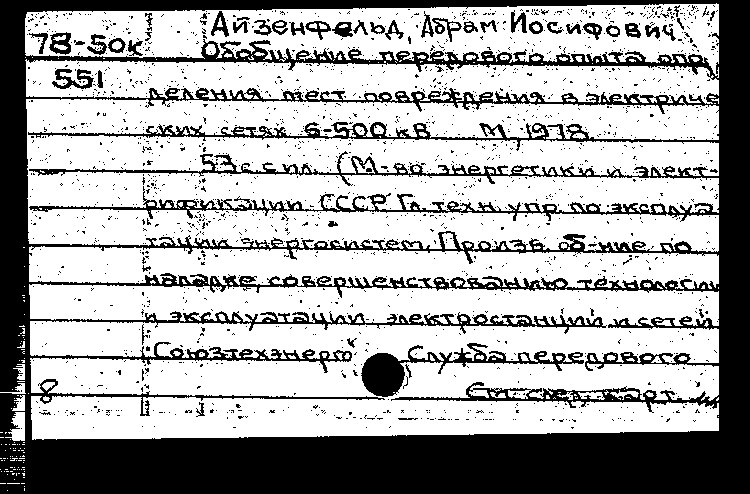 Айзенфельд, Абрам Иосифович
78-50к
Обобщение передового опыта опре
551
деления мест повреждения в электриче
ских сетях 6-500 кВ М, 1978.
53 с с ил. (М-во энергетики и элект-
рификации СССР Гл. техн. упр. по эксплуа
тации энергосистем, Произв. об-ние по
наладке, совершенствованию технологии
и эксплуатации электростанций и сетей
"Союзтехэнерго" Служба передового
8 См. след. карт.